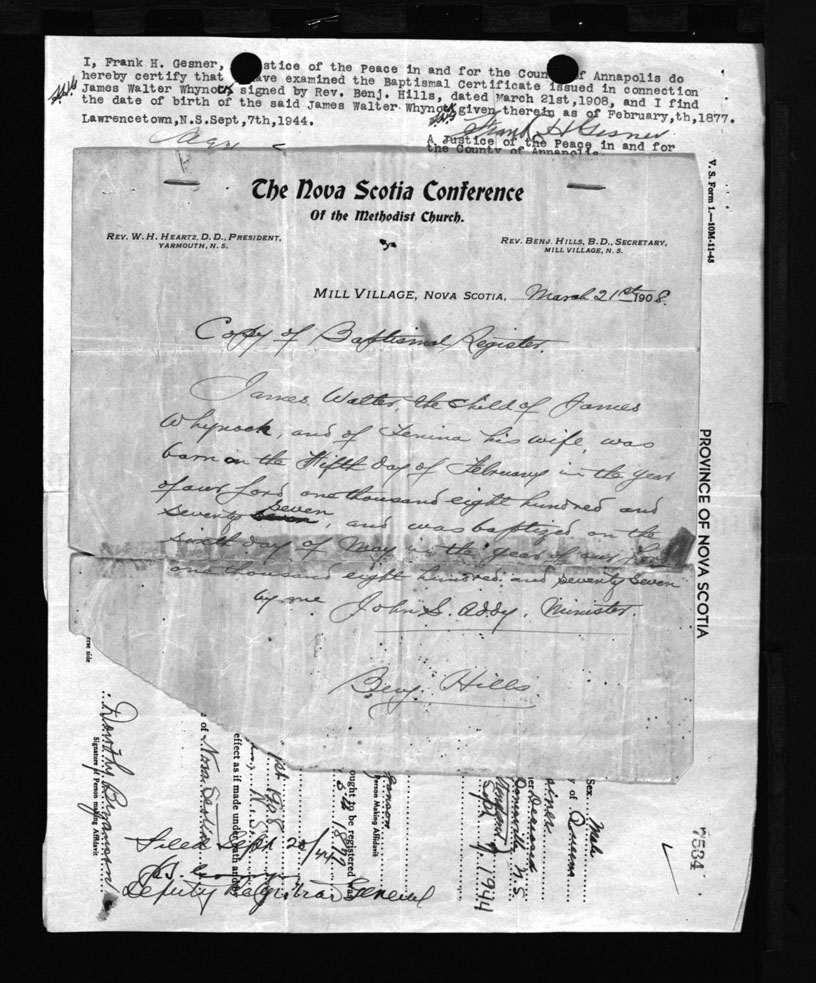 I, Frank H. Gesner, stice of the Peace in and for the Coun of Annapolis do
hereby certify that ave examined the Baptismal Certificate issued in connection
James Walter Whynock signed by Rev. Benj. Hills, dated March 21st,1908, and I find
the date of birth of the said James Walter Whynock given therein as of February,th,1877.
Lawrencetown,N.S.Sept,7th,1944.
Frank H. Gesner
A Justice of the Peace in and for
the County of Annapolis
The Nova Scotia Conference
Of the Methodist Church.
REV. W. H. HEARTZ, D. D., PRESIDENT,
YARMOUTH, N. S.
REV. BENJ. HILLS, B.D., SECRETARY,
MILL VILLAGE, N. S.
MILL VILLAGE, NOVA SCOTIA, March 21st 1908.
Copy of Baptismal Register.
James Walter, the child of James
Whynock, and of Lenina his wife, was
born on the Fifth day of February in the year
of our Lord one thousand eight hundred and
seventy seven, and was baptized on the
sixth day of May in the year of our Lord
one thousand eight hundred and seventy seven
by me John S. Addy, Minister.
Benj. Hills.
V. S. Form 1.—10M-11-43
PROVINCE OF NOVA SCOTIA
7534
Sex Male
y of Queens
Sept 7, 1944
Person Making Affidavit
ought to be registered was
5th 1877
1st 1908
N.S.
effect as if made under oath and
e of Nova Scotia
Signature of Person making Affidavit
rse side
Filed Sept 20/44
Deputy Registrar General